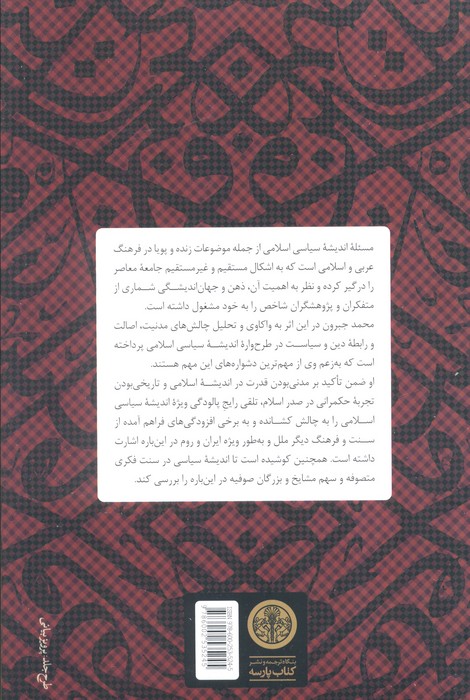 مسئلهٔ اندیشهٔ سیاسی اسلامی از جمله موضوعات زنده و پویا در فرهنگ
عربی و اسلامی است که به اشکال مستقیم و غیرمستقیم جامعهٔ معاصر
را درگیر کرده و نظر به اهمیت آن، ذهن و جهان‌اندیشگی شماری از
متفکران و پژوهشگران شاخص را به خود مشغول داشته است.
محمد جبرون در این اثر به واکاوی و تحلیل چالش‌های مدنیت، اصالت
و رابطهٔ دین و سیاست در طرح‌وارهٔ اندیشهٔ سیاسی اسلامی پرداخته
است که به‌زعم وی از مهم‌ترین دشواره‌های این مهم هستند.
او ضمن تأکید بر مدنی‌بودن قدرت در اندیشهٔ اسلامی و تاریخی‌بودن
تجربهٔ حکمرانی در صدر اسلام، تلقی رایج پالودگی ویژهٔ اندیشهٔ سیاسی
اسلامی را به چالش کشانده و به برخی افزودگی‌های فراهم آمده از
سنت و فرهنگ دیگر ملل و به‌طور ویژه ایران و روم در این‌باره اشارت
داشته است. همچنین کوشیده است تا اندیشهٔ سیاسی در سنت فکری
متصوفه و سهم مشایخ و بزرگان صوفیه در این‌باره را بررسی کند.
طرح جلد: پرویز بیانی
بنگاه ترجمه و نشر
کتاب پارسه